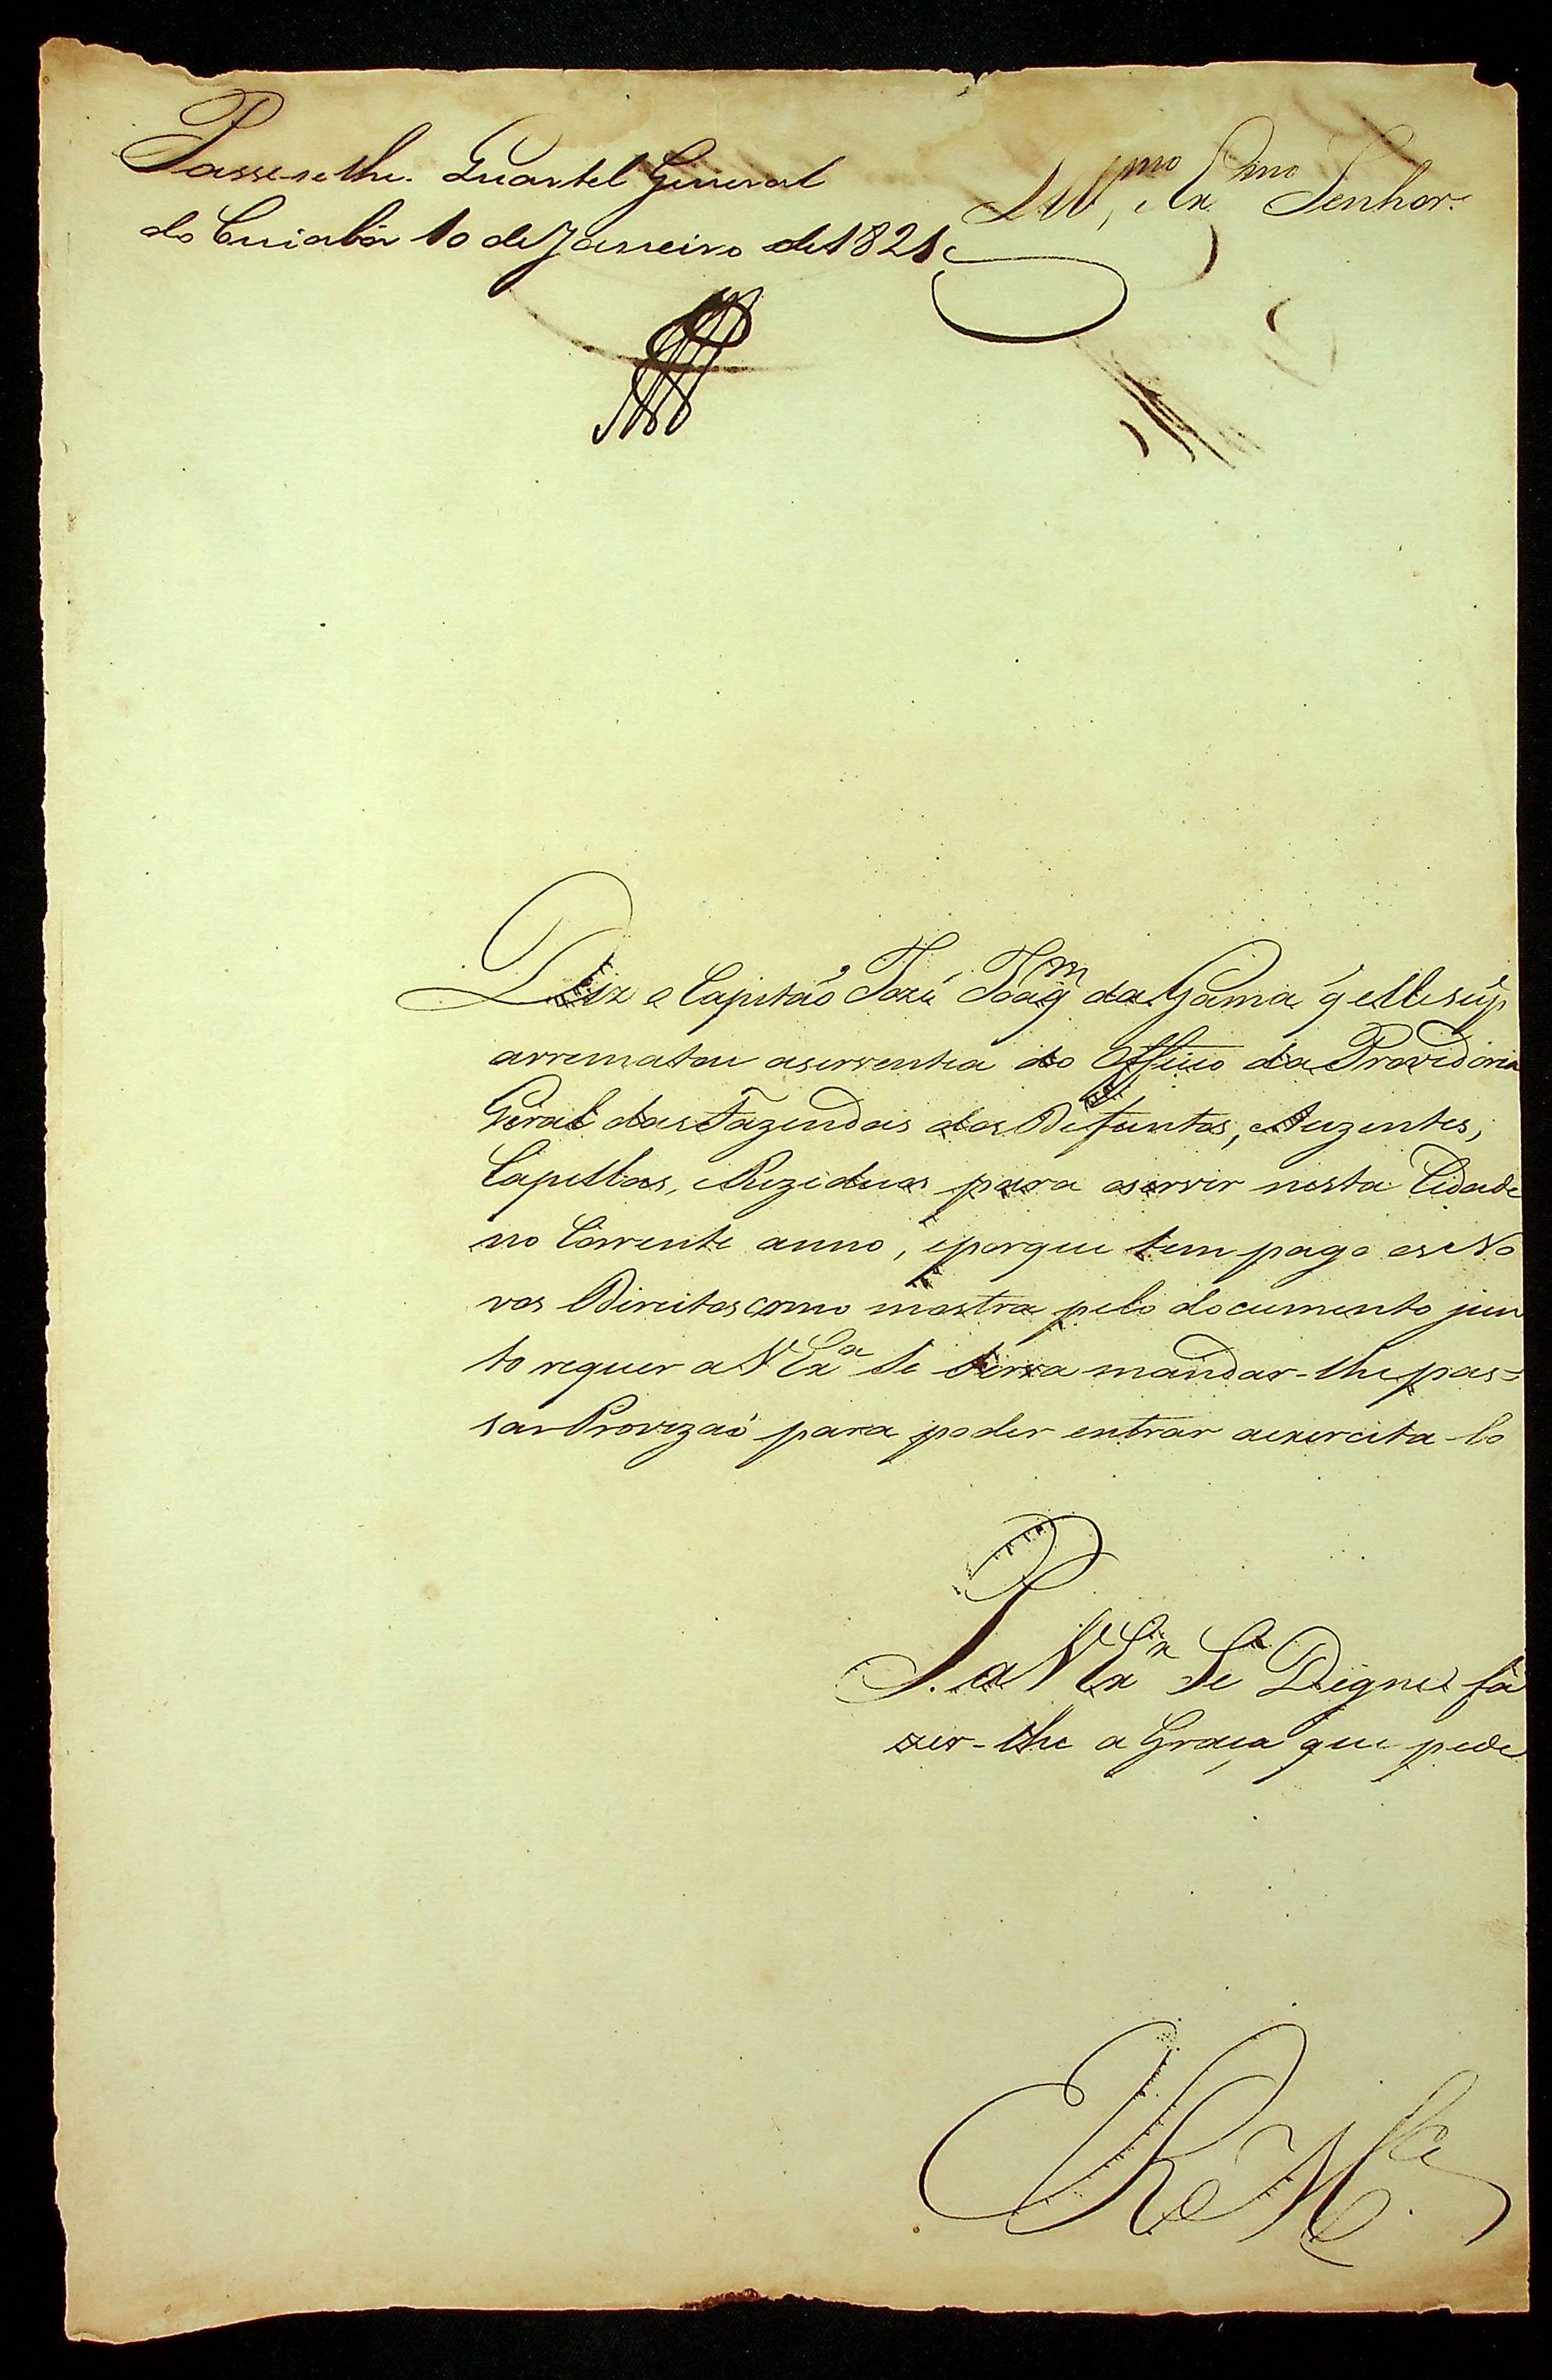 Passe-se lhe. Quartel General
do Cuiabá 10 de Janeiro de 1821
Ill.mo, e Ex.mo Senhor.
Diz o Capitaõ Jozé Joaq.m da Gama q elle sup
arrematou aserventia do Officio da Provedoria
Geral das Fazendas dos Defuntos, Auzentes,
Capellas, e Reziduos para oservir nesta Cidade
no Corrente anno, eporque tem pago os No
vos Direitos como mostra pelo documento jun
to requer a V Ex.a Se Sirva mandar-lhe pas=
sar Provizaõ para poder entrar aexercita-lo
P. a V Ex.a Se Digne fa
zer-lhe a Graça que pede
E R M.ce